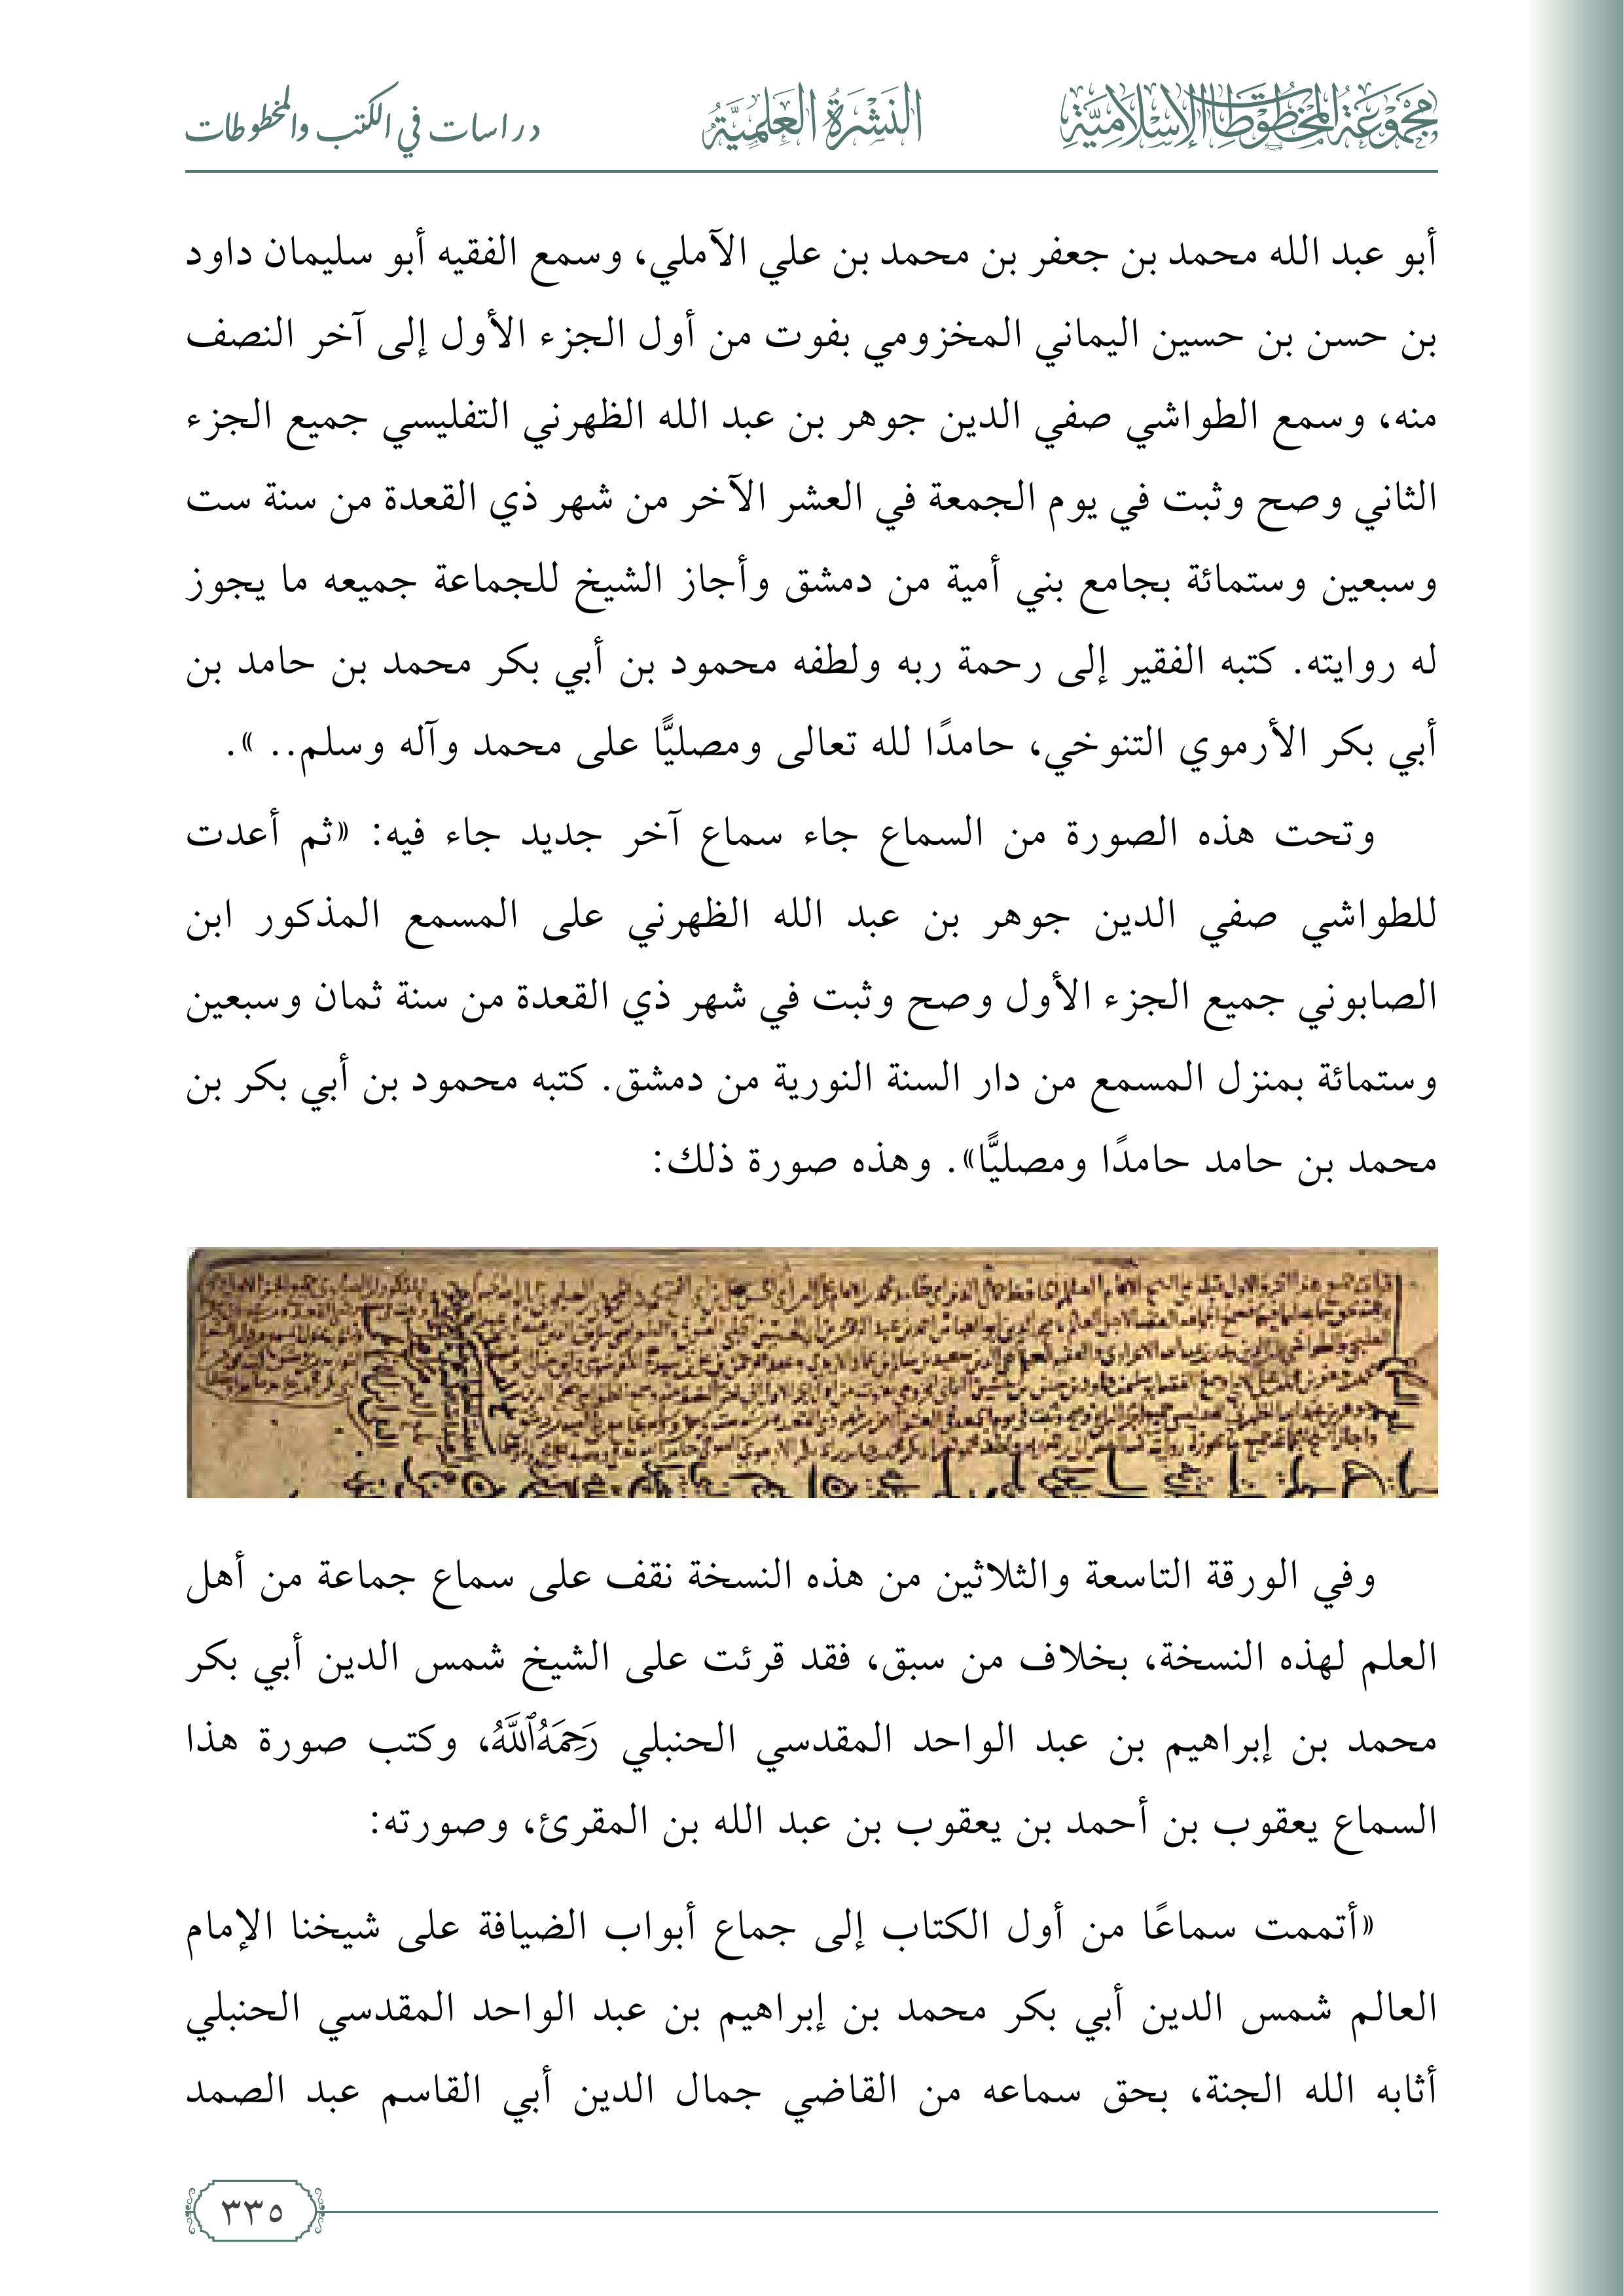 مجموعة المخطوطات الإسلامية
النشرة العلمية
دراسات في الكتب والمخطوطات
أبو عبد الله محمد بن جعفر بن محمد بن علي الآملي، وسمع الفقيه أبو سليمان داود
بن حسن بن حسين اليماني المخزومي بفوت من أول الجزء الأول إلى آخر النصف
منه، وسمع الطواشي صفي الدين جوهر بن عبد الله الظهرني التفليسي جميع الجزء
الثاني وصح وثبت في يوم الجمعة في العشر الآخر من شهر ذي القعدة من سنة ست
وسبعين وستمائة بجامع بني أمية من دمشق وأجاز الشيخ للجماعة جميعه ما يجوز
له روايته. كتبه الفقير إلى رحمة ربه ولطفه محمود بن أبي بكر محمد بن حامد بن
أبي بكر الأرموي التنوخي، حامدًا لله تعالى ومصليًّا على محمد وآله وسلم.. ».
وتحت هذه الصورة من السماع جاء سماع آخر جديد جاء فيه: «ثم أعدت
للطواشي صفي الدين جوهر بن عبد الله الظهرني على المسمع المذكور ابن
الصابوني جميع الجزء الأول وصح وثبت في شهر ذي القعدة من سنة ثمان وسبعين
وستمائة بمنزل المسمع من دار السنة النورية من دمشق. كتبه محمود بن أبي بكر بن
محمد بن حامد حامدًا ومصليًّا». وهذه صورة ذلك:
وفي الورقة التاسعة والثلاثين من هذه النسخة نقف على سماع جماعة من أهل
العلم لهذه النسخة، بخلاف من سبق، فقد قرئت على الشيخ شمس الدين أبي بكر
محمد بن إبراهيم بن عبد الواحد المقدسي الحنبلي رَحِمَهُ ٱللَّهُ، وكتب صورة هذا
السماع يعقوب بن أحمد بن يعقوب بن عبد الله بن المقرئ، وصورته:
«أتممت سماعًا من أول الكتاب إلى جماع أبواب الضيافة على شيخنا الإمام
العالم شمس الدين أبي بكر محمد بن إبراهيم بن عبد الواحد المقدسي الحنبلي
أثابه الله الجنة، بحق سماعه من القاضي جمال الدين أبي القاسم عبد الصمد
٣٣٥